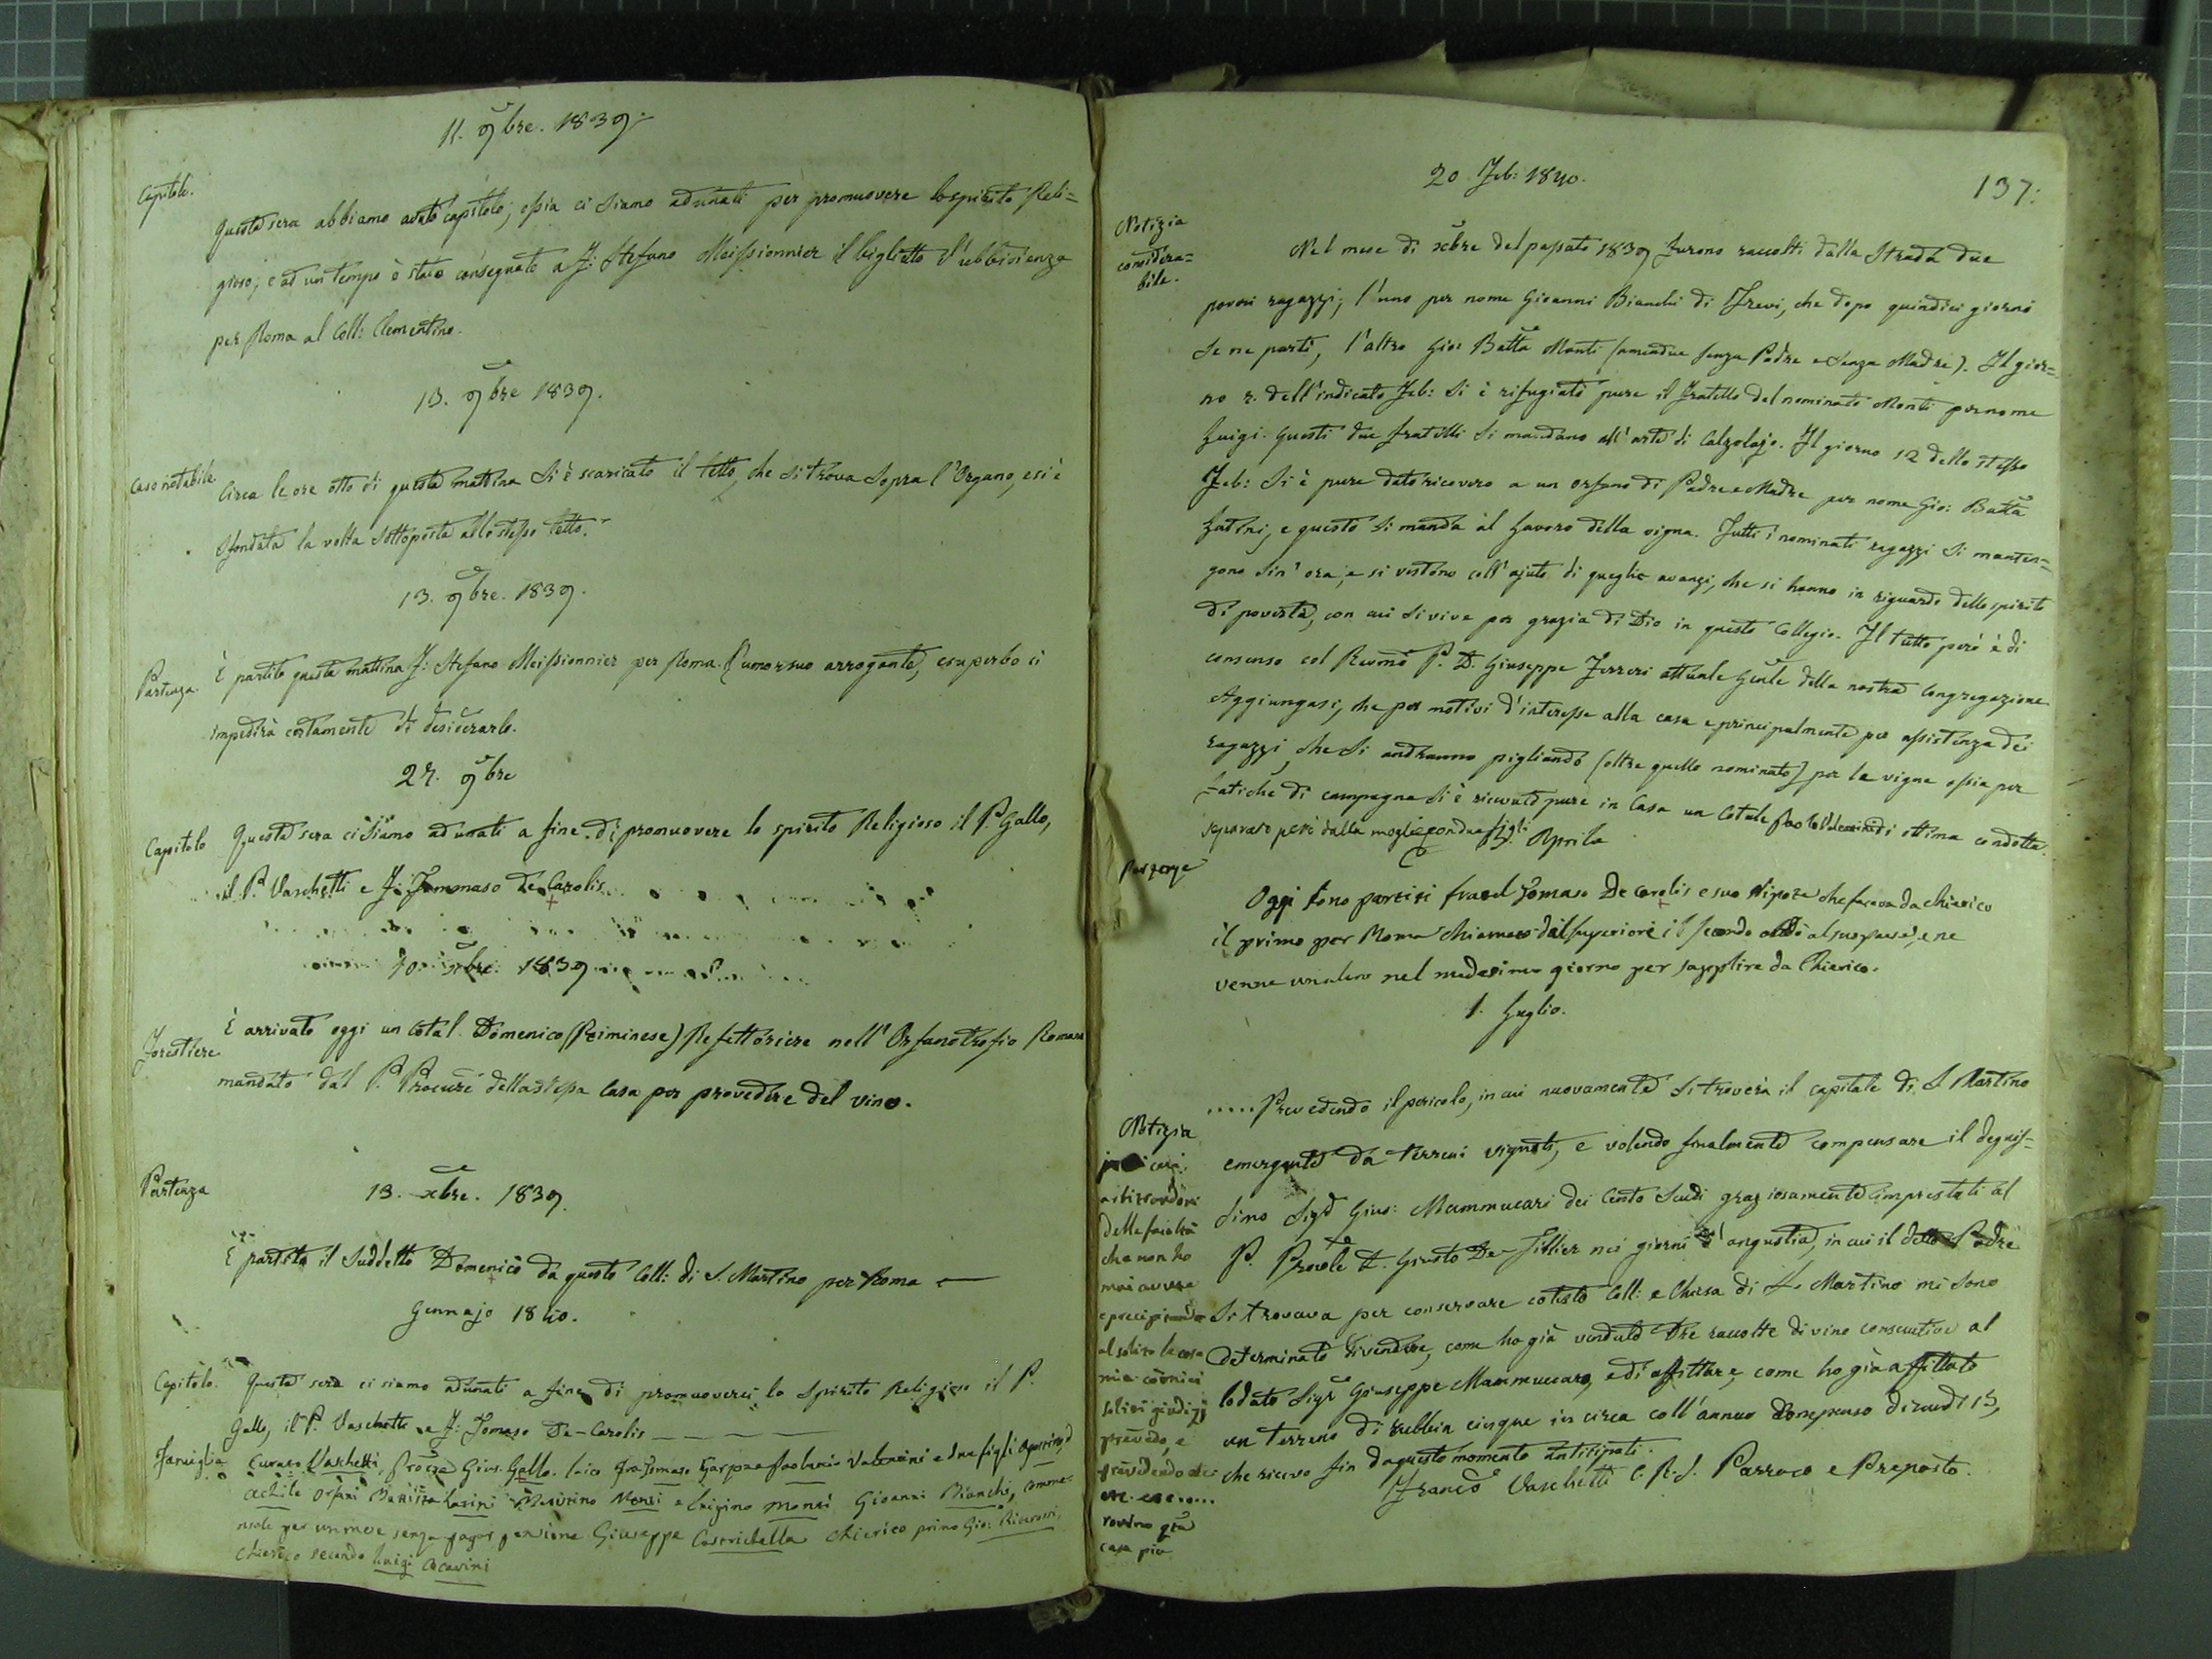 11. 9bre. 1839.
Capitolo.
Questa sera abbiamo avuto capitolo; ossia ci siamo adunati per promuovere lo spirito Reli=
gioso; e ad un tempo è stato consegnato a F: Stefano Meissionnier il biglietto d'ubbidienza
per Roma al Coll: Clementino.
13. 9bre 1839.
Caso notabile
Circa le ore otto di questa mattina si è scaricato il tetto, che si trova sopra l'Organo, e si è
sfondata la volta sottoposta allo stesso tetto.
13. 9bre. 1839.
Partenza.
È partito questa mattina F: Stefano Meissionnier per Roma. L'umor suo arrogante, e superbo ci
impedirà certamente di desiderarlo.
27. 9bre
Capitolo
Questa sera ci siamo adunati a fine di promuovere lo spirito Religioso il P. Gallo,
il P. Vaschetti e F: Tommaso De Carolis
10 xbre: 1839
Forestiere
È arrivato oggi un cotal Domenico (Riminese) Refettoriere nell'Orfanotrofio Romano
mandato dal P. Procure della stessa Casa per provedere del vino.
Partenza
13. xbre. 1839.
È partito il suddetto Domenico da questo Coll: di S. Martino per Roma
Gennajo 1840.
Capitolo.
Questa sera ci siamo adunati a fine di promuoverci lo spirito Religioso il P.
Gallo, il P. Vaschetti e F: Tomaso De-Carolis
Famiglia
Curato Vaschetti, Gius. Gallo. laico Fra Tomaso Paolucio Valentini e due figli Agostino, d
Achile Orfani Battista Latini Monti e Luigino Monti Gioanni Bianchi, comme-
nsale per un mese senza pagar pensione Giuseppe Castrichella chierico primo Gio: Riccorsi,
chierico secondo Luigi Ciccarini
137:
20 Feb: 1840.
Notizia
considera=
bile.
Nel mese di xbre del passato 1839 furono raccolti dalla Strada due
poveri ragazzi; l'uno per nome Gioanni Bianchi di Trevi, che dopo quindici giorni
se ne partì, l'altro Gio: Batta Monti (amendue senza Padre e senza Madre). Il gior=
no 2. dell'indicato Feb: si è rifugiato pure il fratello del nominato Monti per nome
Luigi. Questi due fratelli si mandano all'arte di Calzolajo. Il giorno 12 dello stesso
Feb: si è pure dato ricovero a un orfano di Padre e Madre per nome Gio: Batta
Latini, e questo si manda al lavoro della vigna. Tutti i nominati ragazzi si manten=
gono sin'ora, e si vestono coll'ajuto di queglie avanzi, che si hanno in riguardo dello spirito
di povertà, con cui si vive per grazia di Dio in questo Collegio. Il tutto però è di
consenso col Revmo P. D. Giuseppe Ferreri attuale Gnle della nostra Congregazione
Aggiungasi, che per motivi d'interesse alla casa e principalmente per assistenza dei
ragazzi che si andranno pigliando (oltre quello nominato) per le vigne ossia per
fatiche di campagna si è ricevuto pure in Casa un cotale Paolo di ottima condotta.
separato però dalla moglie con due figli
Aprile
Partenze
Oggi sono partiti fratel Tomaso De Carolis e suo Nipote che faceva da chierico
il primo per Roma chiamato dal superiore il secondo andò al suo paese, e ne
venne un altro nel medesimo giorno per supplire da Chierico.
1. Luglio.
.....Prevedendo il pericolo, in cui nuovamente si troverà il capitale di S. Martino
emergente da terreni vignati, e volendo finalmente compensare il degnis-
simo Sigr Gius: Mammucari dei Cento Scudi graziosamente imprestati al
P. Provle D. Giusto De-Fillier nei giorni d'angustia, in cui il detto Padre
si trovava per conservare cotesto Coll: e Chiesa di S. Martino mi sono
determinato di vendere, come ho già venduto tre raccolte di vino consecutive al
lodato Sigr Giuseppe Mammuccari, e di affittare, come ho già affittato
un terreno di rubbia cinque in circa coll'annuo compenso di scudi 13,
che ricevo fin da questo momento antisipati.
Franco Vaschetti C.R.S. Parroco e Preposto.
Notizia
delle facoltà
che non ho
mai avute
e precipitando
al solito le cose
mie coi miei
soliti giudizj
prevedo, e
etc. etc......
rovino qta
casa pia